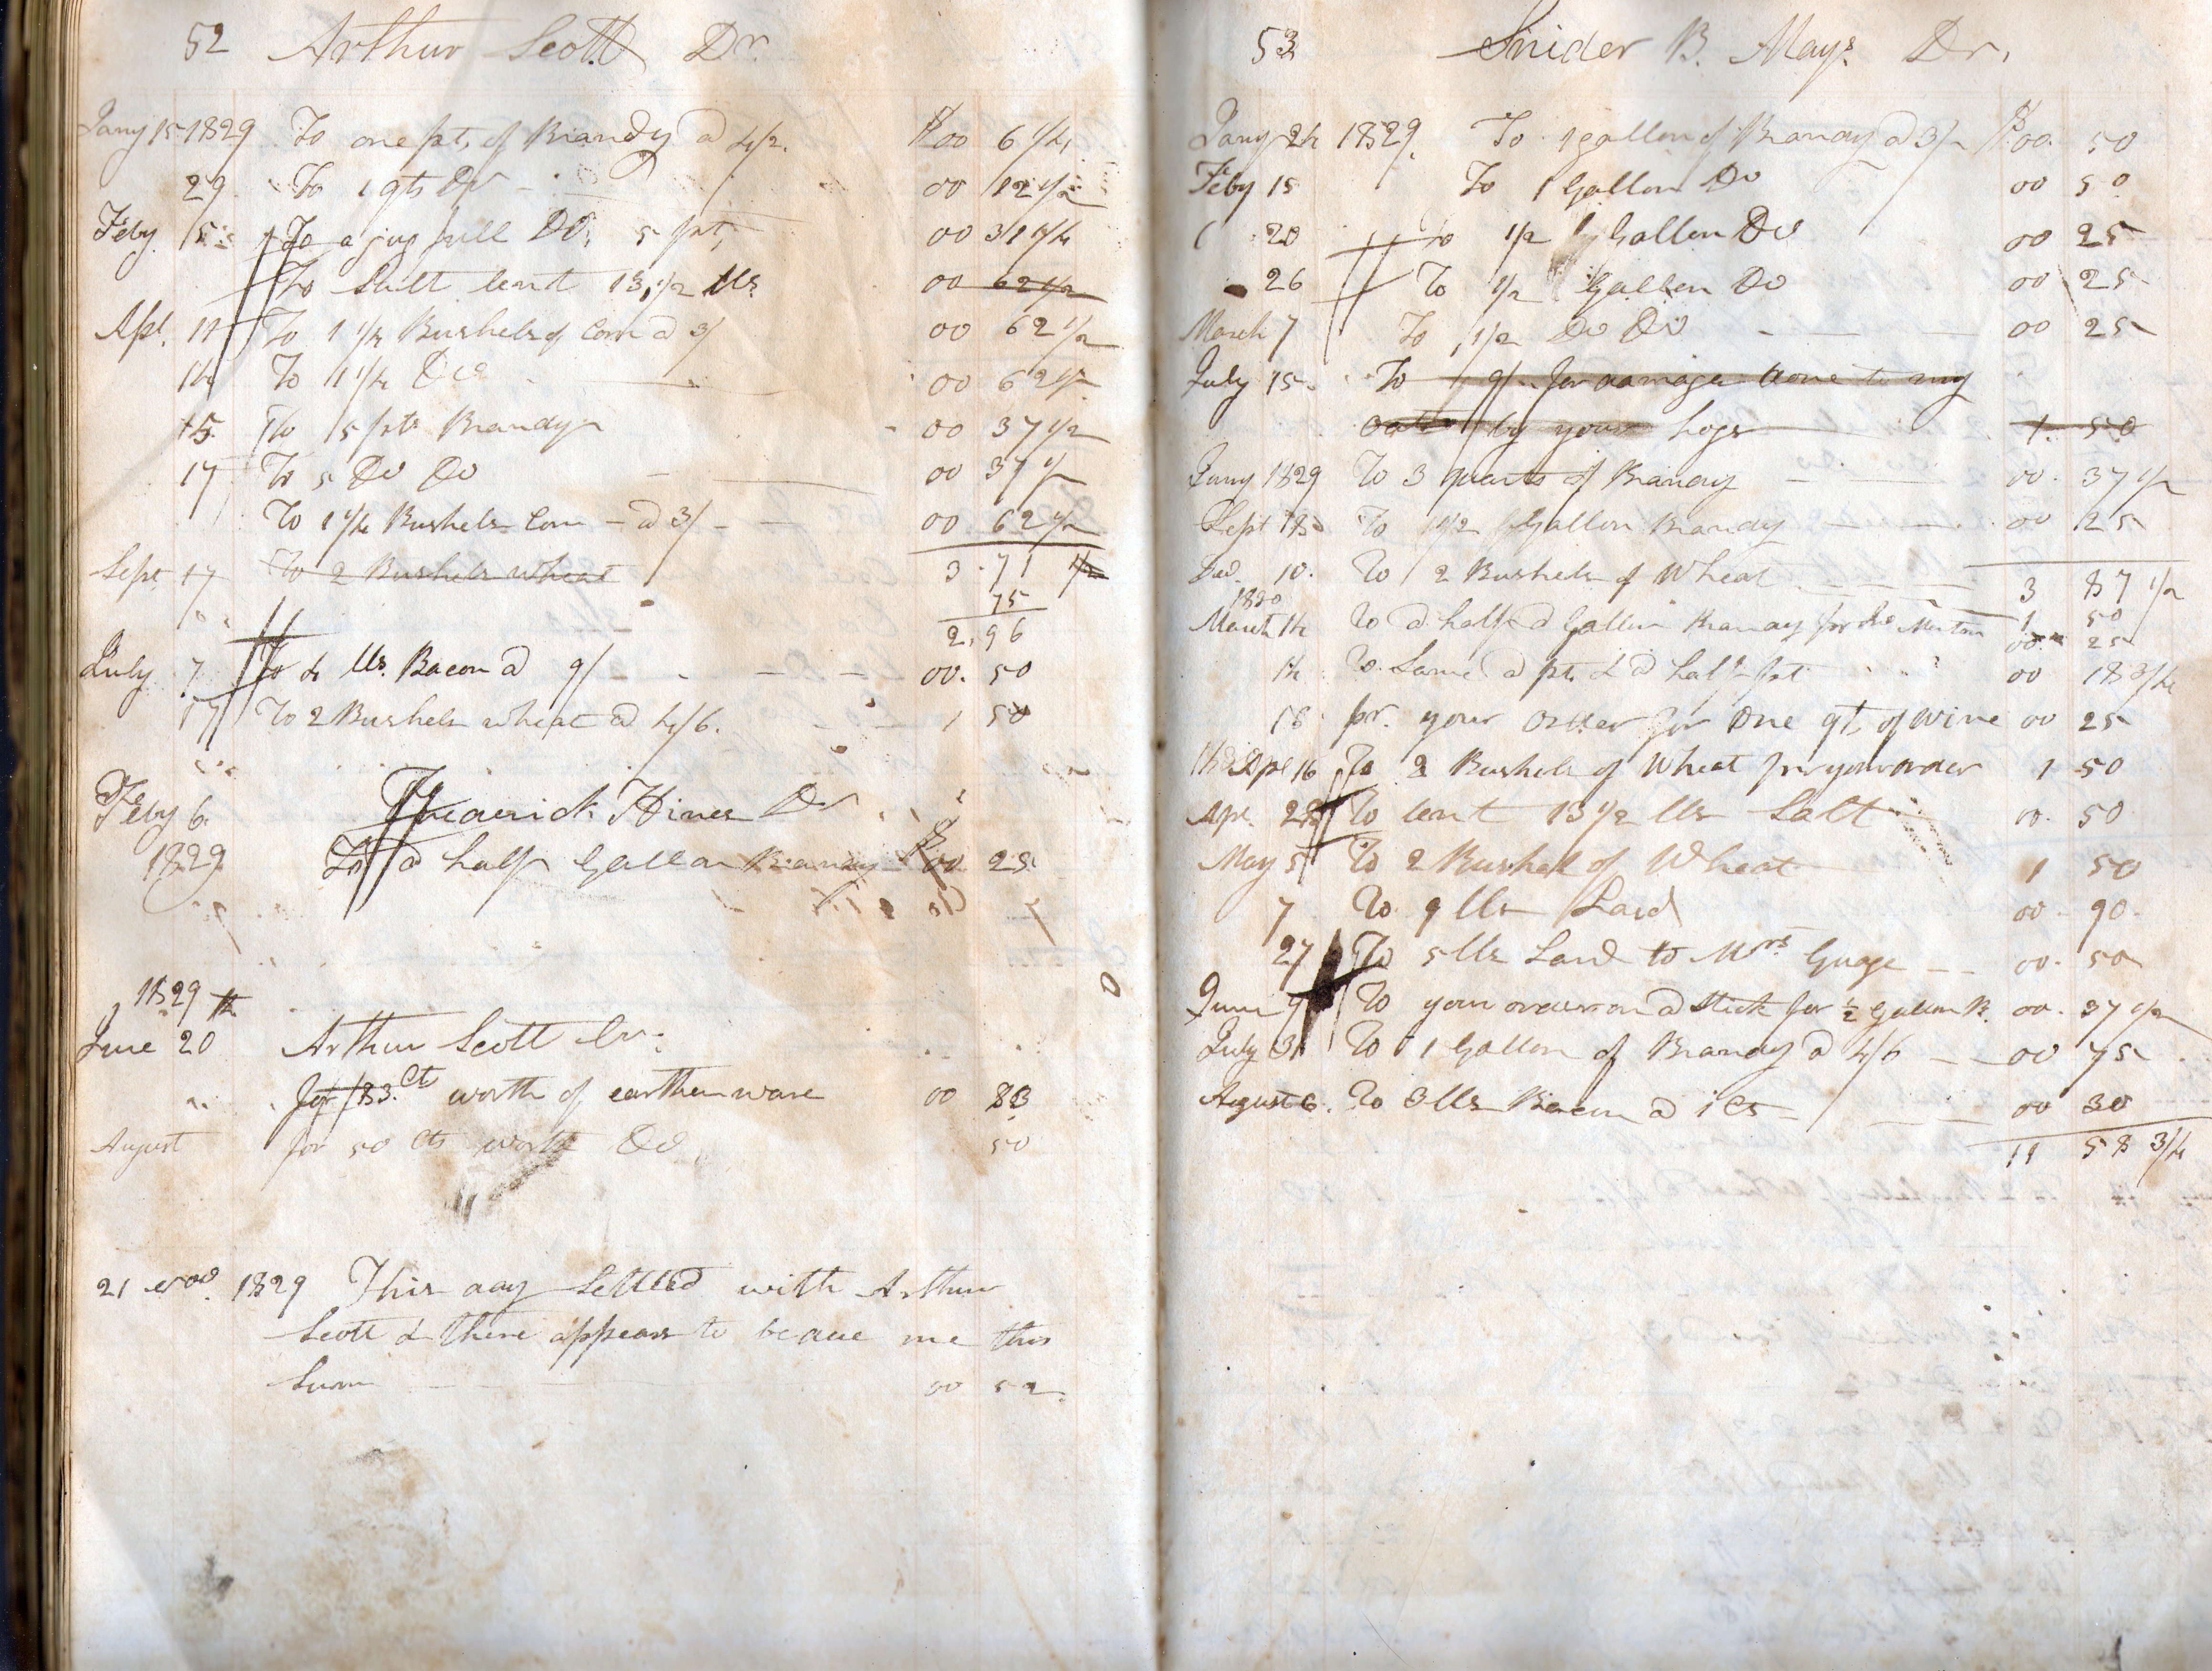 52 Arthur Scott Dr
Jany 15 1829 To one pt, of Brandy a 4/2. $00 6 1/4
29 To 1 qts Do 00 12 1/2
Feby 15 To a jug full Do, 5 pt, 00 31 1/4
To Sallt lent 13,1/2 lls 00 62 1/2
Apl. 11 To 1 1/4 Bushels of Corn a 3/ 00 62 1/2
14 To 1 1/4 Do 00 62 1/2
15 To 5 pts Brandy 00 37 1/2
17 To 5 Do Do 00 37 1/2
To 1 1/4 Bushels Corn - a 3/ - 00 62 1/2
Sept 17 To 2 Bushels wheat 3.71 1/2
75
2,96
July 7 To 4 lls. Bacon a 9/ 00. 50
17 To 2 Bushels wheat a 4/6. 1 50
Feby 6 Frederick Hines Dr
1829 To a half Gallon Brandy $00 25
1829
June 20 Arthur Scott Cr.
" for 83. Cts worth of earthen ware 00 83
August for 50 Cts worth Do 50
21 Nov. 1829 This day Settled with Arthur
Scott & there appears to be due me this
Sum 00 52
53 Snider B. Mays Dr,
Jany 24 1829. To 1 gallon of Brandy a 3/ $00. 50
Feby 15 To 1 Gallon Do 00 50
20 To 1/2 Gallon Do 00 25
26 To 1/2 Gallon Do 00 25
March 7 To 1/2 Do Do 00 25
July 15. To 9/ for damage done to my
oats by your hogs 1. 50
Jany 1829 To 3 quarts of Brandy 00. 37 1/2
Sept 18 To 1/2 Gallon Brandy 00 25
Dec. 10. To 2 Bushels of Wheat 3 87 1/2
1830 1 50
March 14 To a half a Gallon Brandy for 00 25
14 To Same a pt. & a half pt 00 18 3/4
18 pr. your order for one qt, of wine 00 25
Apl 16 To 2 Bushels of Wheat pr your order 1 50
Apl. 28 To lent 13 1/2 lls Salt 00. 50
May 5 To 2 Bushel of Wheat 1 50
7 To 9 lls Lard 00. 90.
27 To 5 lls Lard to Mrs Guage 00. 50
June 9 To your order on a Stick for 1/2 Gallon B. 00. 37 1/2
July 31 To 1 Gallon of Brandy a 4/6 00 75
August 6. To 3 lls Bacon a 1 Cts 00 30
11 58 3/4